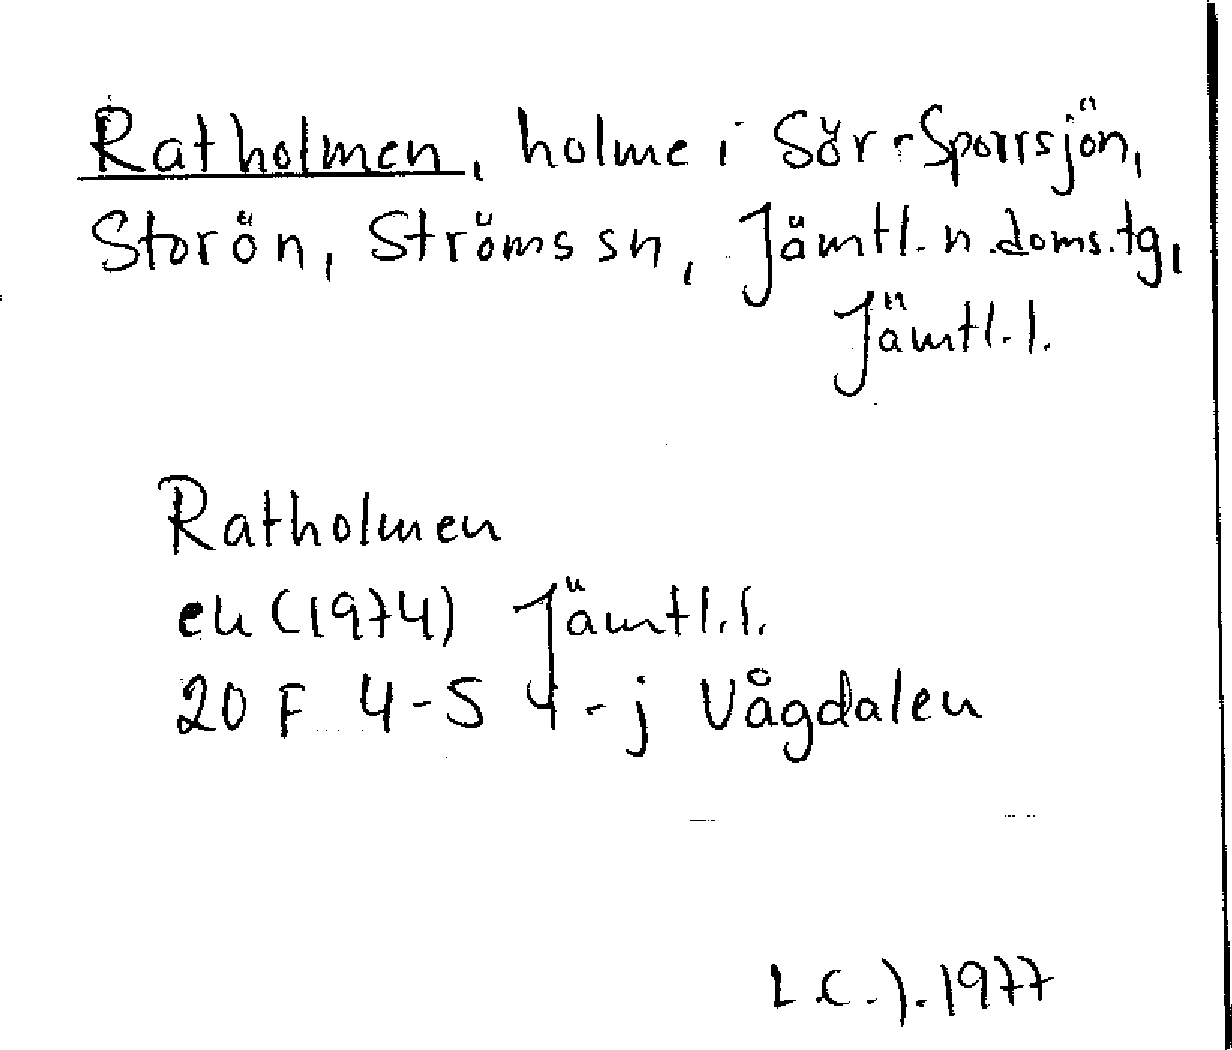 Ratholmen, holme i Sör-Sporrsjön,
Storön, Ströms sn, Jämtl. n. doms.tg,
Jämtl. l.
Ratholmen
ek (1974) Jämtl. l.
20 F 4-5 4-j Vågdalen
L.C.J. 1977